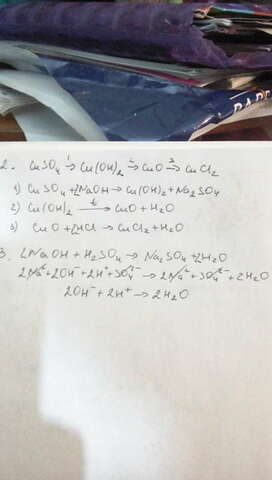 2. CuSO₄ →¹ Cu(OH)₂ →² CuO →³ CuCl₂
1) CuSO₄ + 2NaOH → Cu(OH)₂ + Na₂SO₄
2) Cu(OH)₂ →ᵗ CuO + H₂O
3) CuO + 2HCl → CuCl₂ + H₂O
3. 2NaOH + H₂SO₄ → Na₂SO₄ + 2H₂O
2Na⁺ + 2OH⁻ + 2H⁺ + SO₄²⁻ → 2Na⁺ + SO₄²⁻ + 2H₂O
2OH⁻ + 2H⁺ → 2H₂O